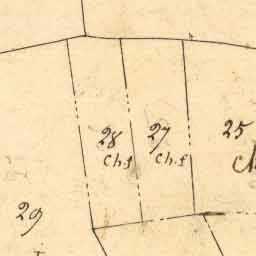 28
Ch.f
27
Ch.f
25
29